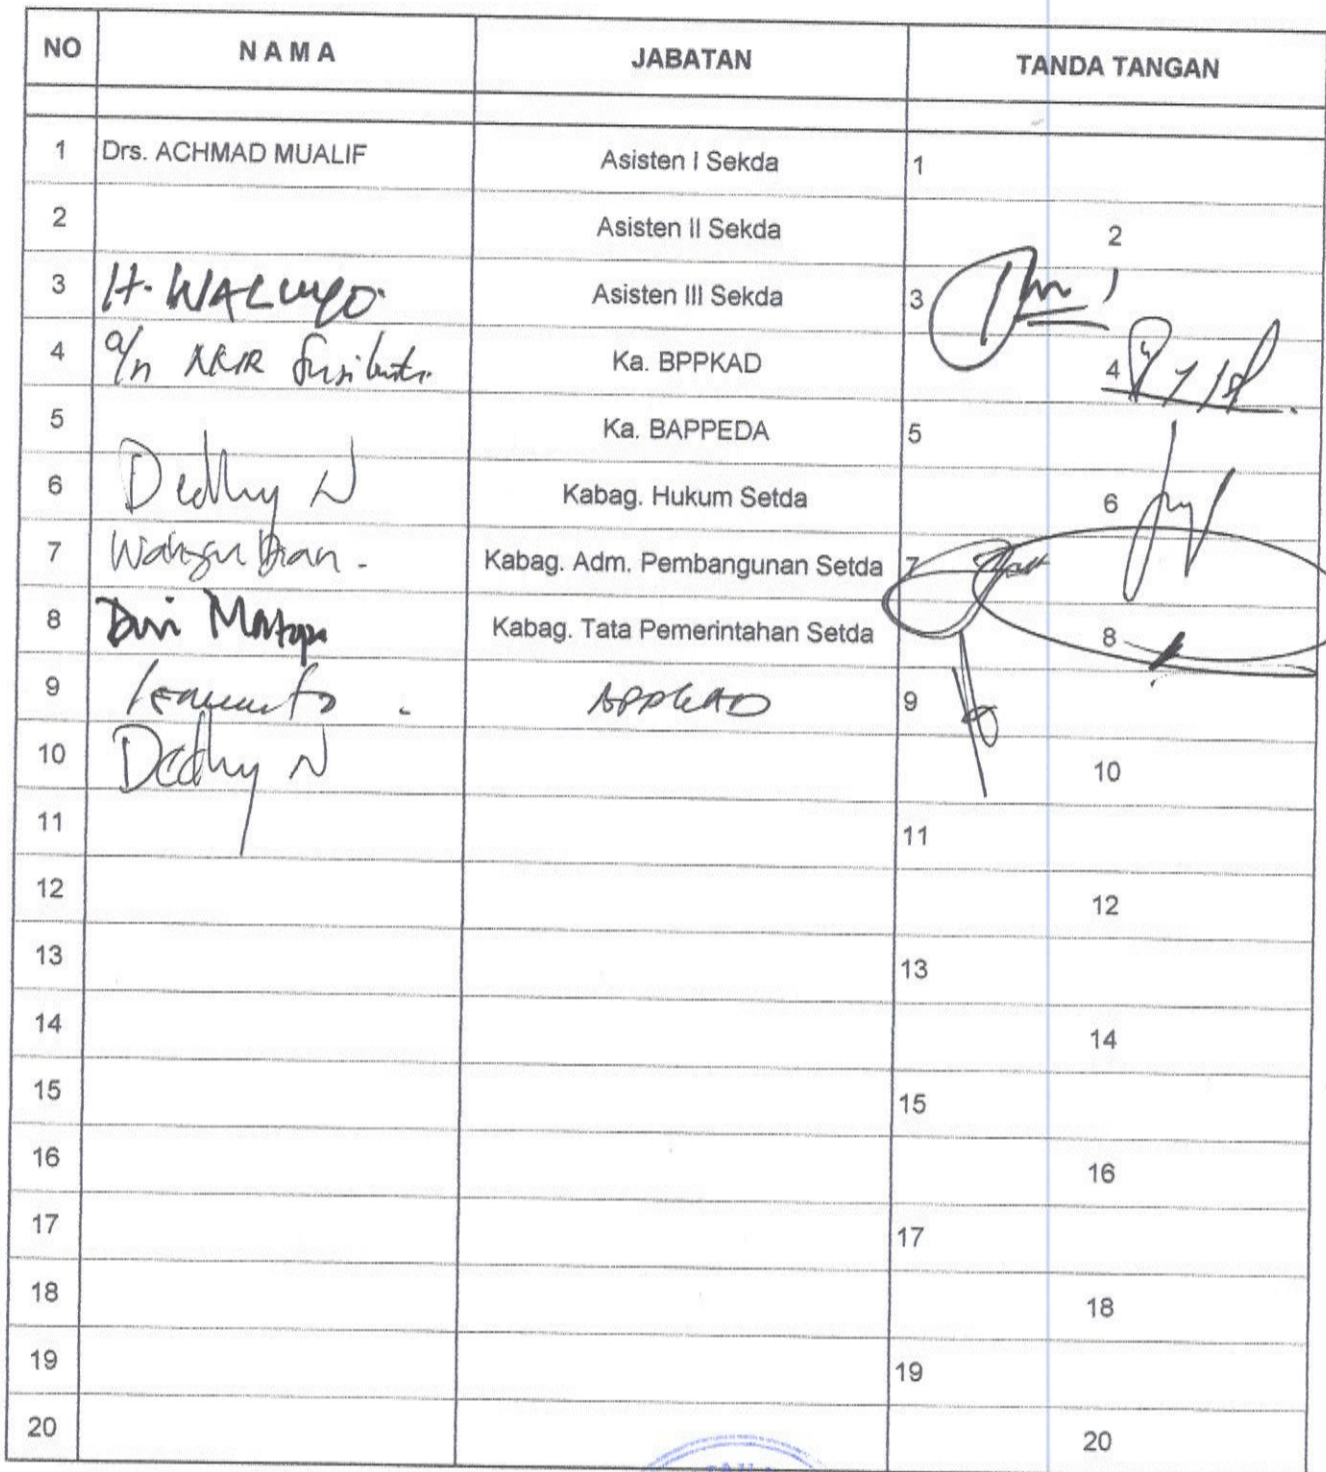 NO NAMA JABATAN TANDA TANGAN
1 Drs. ACHMAD MUALIF Asisten I Sekda 1
2 Asisten II Sekda 2
3 H. WALUYO Asisten III Sekda 3
4 a/n Ka. BPPKAD 4
5 Ka. BAPPEDA 5
6 Dedhy N Kabag. Hukum Setda 6
7 Wahyu Dian Kabag. Adm. Pembangunan Setda 7
8 Kabag. Tata Pemerintahan Setda 8
9 BPPKAD 9
10 Dedhy N 10
11 11
12 12
13 13
14 14
15 15
16 16
17 17
18 18
19 19
20 20